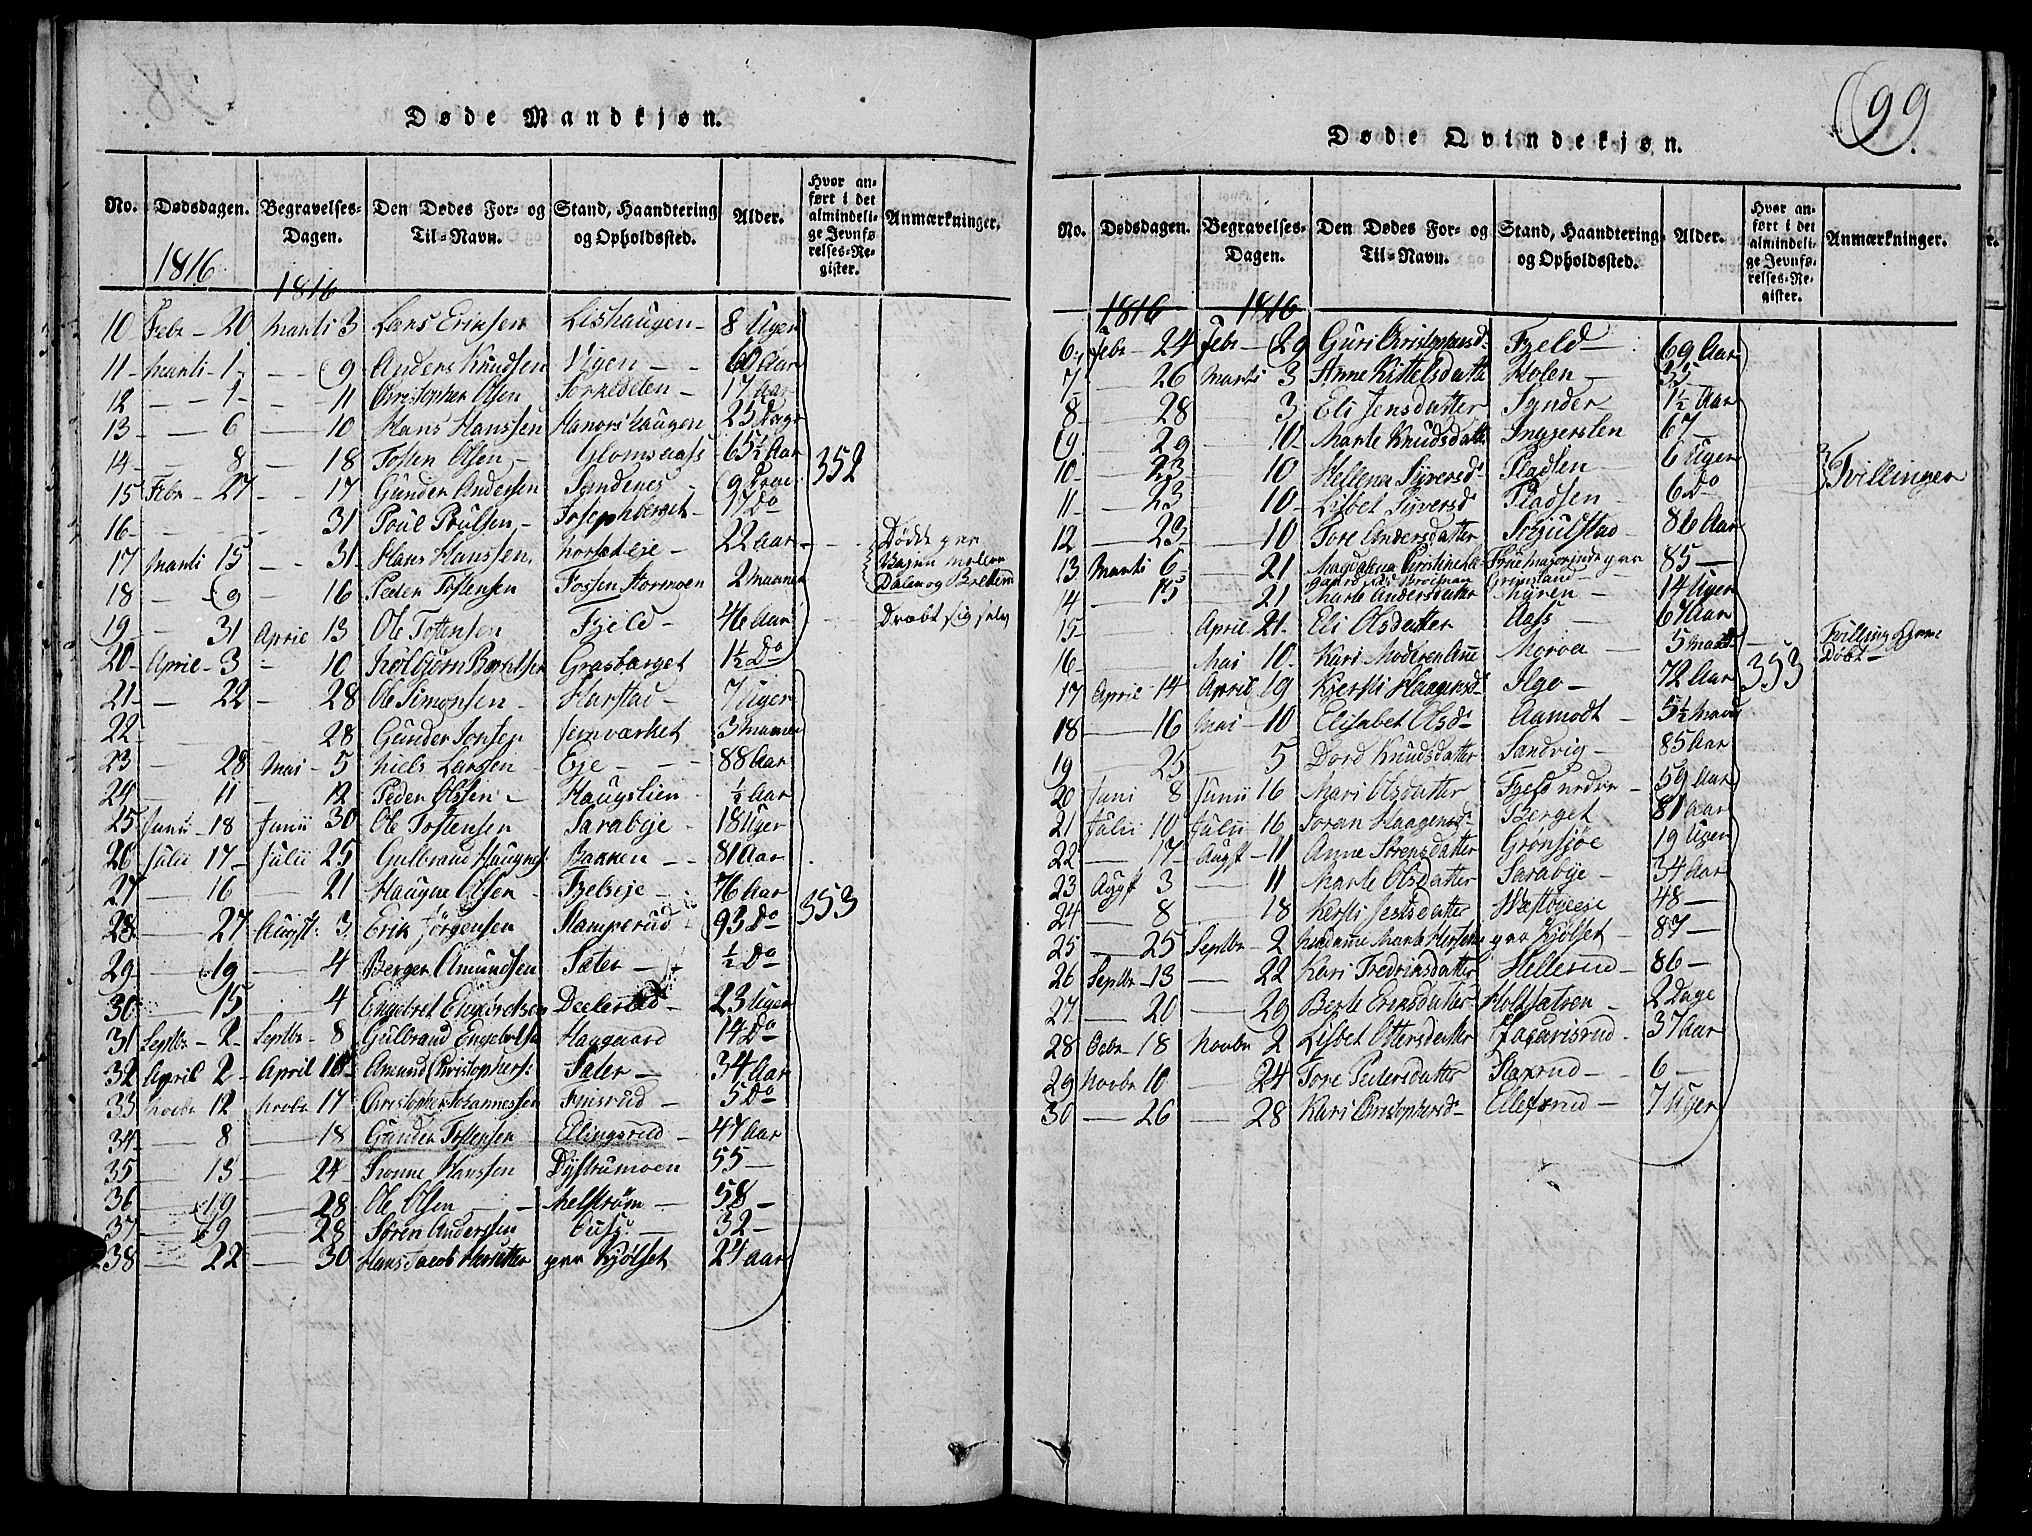 99
Døde Mandkjøn.
No. Dødsdagen. Begravelses-Dagen. Den Dødes For- og Til-Navn. Stand, Haandtering og Opholdssted. Alder. Hvor anført i det almindelige Jevnførelses-Register. Anmærkninger.
1816 1816
10 Febr - 20 Marti 3 Lars Eriksen Lishaugen - 8 Uger
11 Marti - 1 - - 9 Anders Knudsen Vigen - - 60 Aar
12 - - 1 - - 11 Christopher Olsen 17 Aar
13 - - 6 - 10 Hans Hanssen Hanorshaugen 25 Dage
14 - - 8 - 18 Tosten Olsen - Glomsaass 65½ Aar 352
15 Febr - 27 - - 17 Gunder Andersen Sandenes - 9 Dage
16 - - - 31 Poul Poulsen - Josephberget - 17 Do
17 Marti 15 - - 31 Hans Hanssen Norsædeje - 22 Aar - - Døde paa Veien mellem Dalen og
18 - 9 - 16 Peder Tostensen Fossen Stormoen 2 Maaner
19 - 31 April 13 Ole Tostensen Fjeld - 46 Aar - Dræbt sig selv
20 April - 3 - 10 Kolbjørn Berntsen Grasberget 1½ Do
21 - - 22 - 28 Ole Simonsen - Harstad - 7 Uger
22 - - - 28 Gunder Jonsen Jernværket 3 Maaner
23 - 28 Mai - 5 Niels Larsen Eje - - - 88 Aar
24 - 11 - 12 Peder Olssen - Haugslien - ½ Aar
25 Junii - 18 Junii 30 Ole Tostensen Sarabeje - 18 Uger
26 Julii 17 - Julii 25 Gulbrand Haugnes: Bakken - - 81 Aar
27 - 16 - 21 Haugne Olsen - Fjelseje - 76 Aar
28 - 27 Augst: 3 Erik Jörgensen Kamperud - 93 Do 353
29 - 19 - 4 Berger Amundsen Sæter - ½ Do
30 - 15 - 4 Engebret Engebretsen Deelerud - 23 Uger
31 Septbr - 2 - Septbr - 8 Gulbrand Engebretsen Haagaard 14 Do
32 April 2 - April 16 Amund Christophers: Sæter - 34 Aar
33 Novbr 12 Novbr 17 Christopher Johannessen Fonsrud - 5 Do
34 - 8 - 18 Gunder Tostensen Elingsrud - 47 Aar
35 - 13 - 24 Tronne Hanssen Dystrumoen 55 -
36 - 19 - 28 Ole Olsen - - Melstrøm - 58 -
37 - 19 - 28 Søren Andersen - 32 -
38 - 22 - 30 Hans Jacob paa Kjølset 24 Aar
Døde Qvindekjøn.
No. Dødsdagen. Begravelses-Dagen. Den Dødes For- og Til-Navn. Stand, Haandtering og Opholdssted. Alder. Hvor anført i det almindelige Jevnførelses-Register. Anmærkninger.
1816 1816
6 Febr - 24 Febr - 29 Guri Christophersd: Fjeld - 69 Aar
7 - 26 Marti 3 Anne Kittelsdatte Holen - 35 -
8 - 28 - 3 Eli Jensdatter Synder - 1½ Aar
9 - 29 - 10 Marte Knudsdatte Inggerslen 67 -
10 - 23 - 10 Hellena Syversd: Pladsen - 6 Uger Tvillinger
11 - 23 - 10 Lisbet Syversd Pladsen - 6 Do
12 - 23 - 10 Tore Andersdatter Skjulstad - 86 Aar
13 Marti 6 - 21 Magdalena Christine Frue Majorinde paa Grønsland 85 -
14 - 15 - 21 Marte Andersdatter Myren - 14 Uger
15 - April - 21 Eli Olsdatter Aass - 67 Aar
16 - Mai 10 Kari Moroa - 5 Tvilling Døbt -
17 April - 14 April 19 Kjersti Haagensd: Ilgo - 72 Aar 353
18 - 16 Mai - 10 Elisabet Olsd: Aamodt - 5½
19 - 25 - 5 Dord Knudsdatter Sandvig - 85 Aar
20 Juni 8 Junii 16 Mari Olsdatter Fjeld nedre - 59 Aar
21 Julii 10 Julii 16 Joran Haagensd - Berget 81 Aar
22 - 17 - Augst - 11 Anne Sørensdatter Grønsjøe 19 Uger
23 Augst 3 - 11 Marte Olsdatter Sarabye - 34 Aar
24 - 8 - 18 Kersti Jensdatter 48 -
25 - 25 Septbr - 2 Madame Marte paa Kjølset - 87 -
26 Septbr - 13 - 22 Kari Fredriksdatter Hellerud - 86 -
27 - 20 - 29 Berte Eriksdatter Holdsætren - 2 Dage
28 Octbr - 18 Novbr 2 Lisbet Ottersdatter Zacarisrud - 37 Aar
29 Novbr 10 - 24 Tore Pedersdatter Staxrud - 6 -
30 - 26 - 28 Kari Christophersd - Elefsrud - 7 Uger